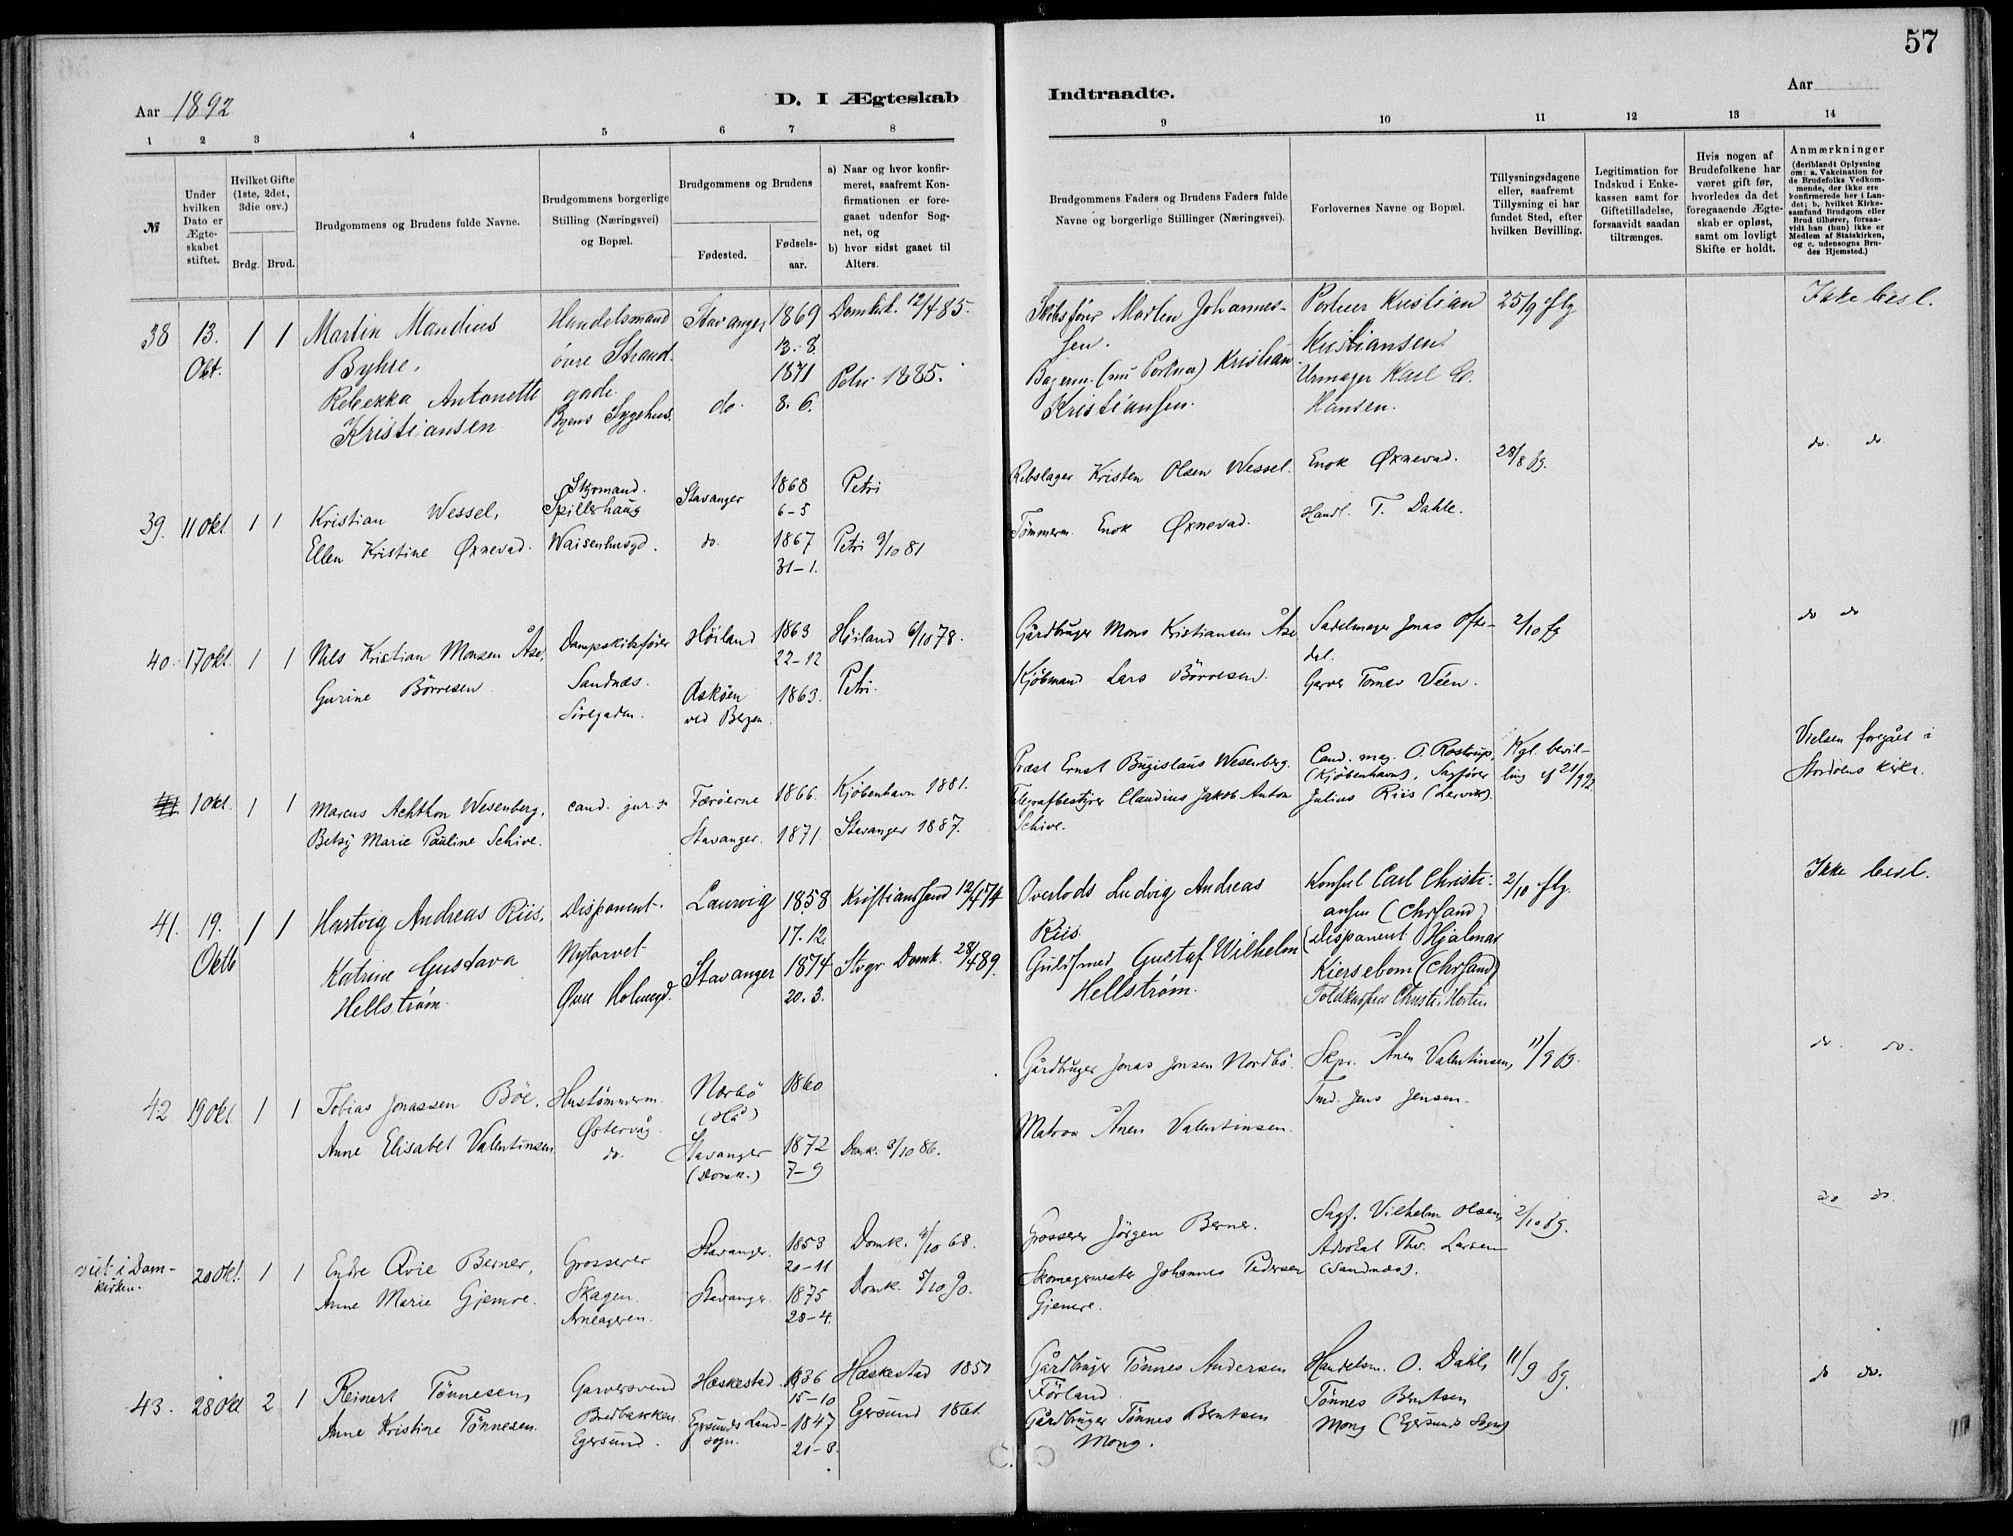 57
Aar 1892
D. I Ægteskab
Indtraadte.
Aar
1 2 3 4 5 6 7 8 9 10 11 12 13 14
№
Under hvilken Dato er Ægteskabet stiftet.
Hvilket Gifte (1ste, 2det, 3die osv.)
Brdg. Brud.
Brudgommens og Brudens fulde Navne.
Brudgommens borgerlige Stilling (Næringsvei) og Bopæl.
Brudgommens og Brudens
Fødested.
Fødselsaar.
a) Naar og hvor konfirmeret, saafremt Konfirmationen er foregaaet udenfor Sognet, og
b) hvor sidst gaaet til Alters.
Brudgommens Faders og Brudens Faders fulde Navne og borgerlige Stillinger (Næringsvei).
Forlovernes Navne og Bopæl.
Tillysningsdagene eller, saafremt Tillysning ei har fundet Sted, efter hvilken Bevilling.
Legitimation for Indskud i Enkekassen samt for Giftetilladelse, forsaavidt saadan tiltrænges.
Hvis nogen af Brudefolkene har været gift før, hvorledes da det foregaaende Ægteskab er opløst, samt om lovligt Skifte er holdt.
Anmærkninger (deriblandt Oplysning om: a. Vakcination for de Brudefolks Vedkommende, der ikke ere konfirmerede her i Landet; b. hvilket Kirkesamfund Brudgom eller Brud tilhører, forsaavidt han (hun) ikke er Medlem af Statskirken, og c. udensogns Brudes Hjemsted.)
38 13. Okt. 1 1
Martin Mandius
Byhre,
Rebekka Antonette
Kristiansen
Handelsmand
övre Strand
gade
Byens Sygehus.
Stavanger
do.
1869
13. 8
1871
8. 6.
Domkirk. 12/4 85.
Petri 1885.
Skibsfører Morten Johannes-
sen.
Bagerm. (nu Portner) Kristian
Kristiansen.
Portner Kristian
Kristiansen.
Urmager Karl
Hansen.
25/9 flg
Ikke besl.
39. 11 Okt. 1 1
Kristian Wessel,
Ellen Kristine Øxnevad.
Styrmand.
Spillerhaug
Waisenhusgd.
Stavanger
do.
1868
6-5
1867
31-1.
Petri
Petri 9/10 81
Rebslager Kristen Olsen Wessel.
Tømmerm. Enok Øxnevad.
Enok Øxnevad.
Handl. T. Dahle.
28/8 fg.
do. do
40. 17 Okt. 1 1
Nils Kristian Monsen Åse,
Gurine Börresen
Dampskibsfører
Sandnæs.
Söregaden.
Höiland
Askøen
ved Bergen.
1863
22-12
1863.
Höiland 6/10 78.
Petri.
Gårdbruger Mons Kristiansen Åse
Kjöbmand Lars Börresen.
Sadelmager Jonas Ofte-
dal.
Garver Tomas Véen.
2/10 fg
do do
1 Okt. 1 1
Marcus Achthon Wesenberg,
Betsy Marie Pauline Schive.
cand. jur.
Færöerne
Stavanger.
1866.
1871
Kjöbenhavn 1881.
Stavanger 1887.
Præst Ernst Bugislaus Wesenberg.
Telegrafbestyrer Claudius Jakob Anton
Schive.
Cand. mag. O. Rostrup,
(Kjöbenhavn), Sagfører
Julius Riis (Lervik).
Kgl. bevil-
ling af 21/9 92
Vielsen foregået i
Stordöens Kirke.
41. 19. Oktb 1 1
Hartvig Andreas Riis,
Katrine Gustava
Hellstrøm.
Disponent.
Nytorvet
Øvre Holmegd.
Laurvig
Stavanger
1858
17. 12.
1874
20. 3.
Kristianssand 12/4 74
Stvgr Domk. 28/4 89.
Overlods Ludvig Andreas
Riis
Guldsmed Gustaf Wilhelm
Hellstrøm.
Konsul Carl Christi-
ansen (Chrsand)
(Disponent Hjalmar
Kiersebom (Chrsand)
2/10 flg.
Ikke besl.
42 19 Okt. 1 1
Tobias Jonassen Böe,
Anne Elisabet Valentinsen
Hustömmerm.
Østervåg.
do.
Nærbö
(Hå)
Stavanger
(Domk.)
1860
1872
7-9
Domk. 3/10 86.
Gårdbruger Jonas Jonsen Nordbö.
Matros Ånen Valentinsen.
Skpr. Ånen Valentinsen,
Tmd. Jens Jensen.
11/9 fg.
do. do.
viet i Dom-
kirken.
20 Okt. 1 1
Endre Qvie Berner,
Anne Marie Gjemre.
Grosserer
Skagen.
Arneageren.
Stavanger.
Stavanger.
1853
20-11
1875
28-4.
Domk. 4/10 68.
Domk. 5/10 90.
Grosserer Jörgen Berner.
Skomagermester Johannes Pedersen
Gjemre.
Sagf. Vilhelm Olsen,
Advokat Thv. Larsen
(Sandnæs).
2/10 fg.
do do
43. 28 Okt 2 1
Reinert Tönnesen,
Anne Kristine Tönnesen.
Garversvend
Bredbakken
Egersund.
Heskestad
Egersunds Land-
sogn.
1836
15-10
1847
21-8.
Heskestad 1851
Egersund 1861.
Gårdbruger Tönnes Andersen
Förland.
Gårdbruger Tönnes Berntsen
Mong.
Handelsm. O. Dahl,
Tönnes Berntsen
Mong (Egersunds Sogn)
11/9 fg.
do do.